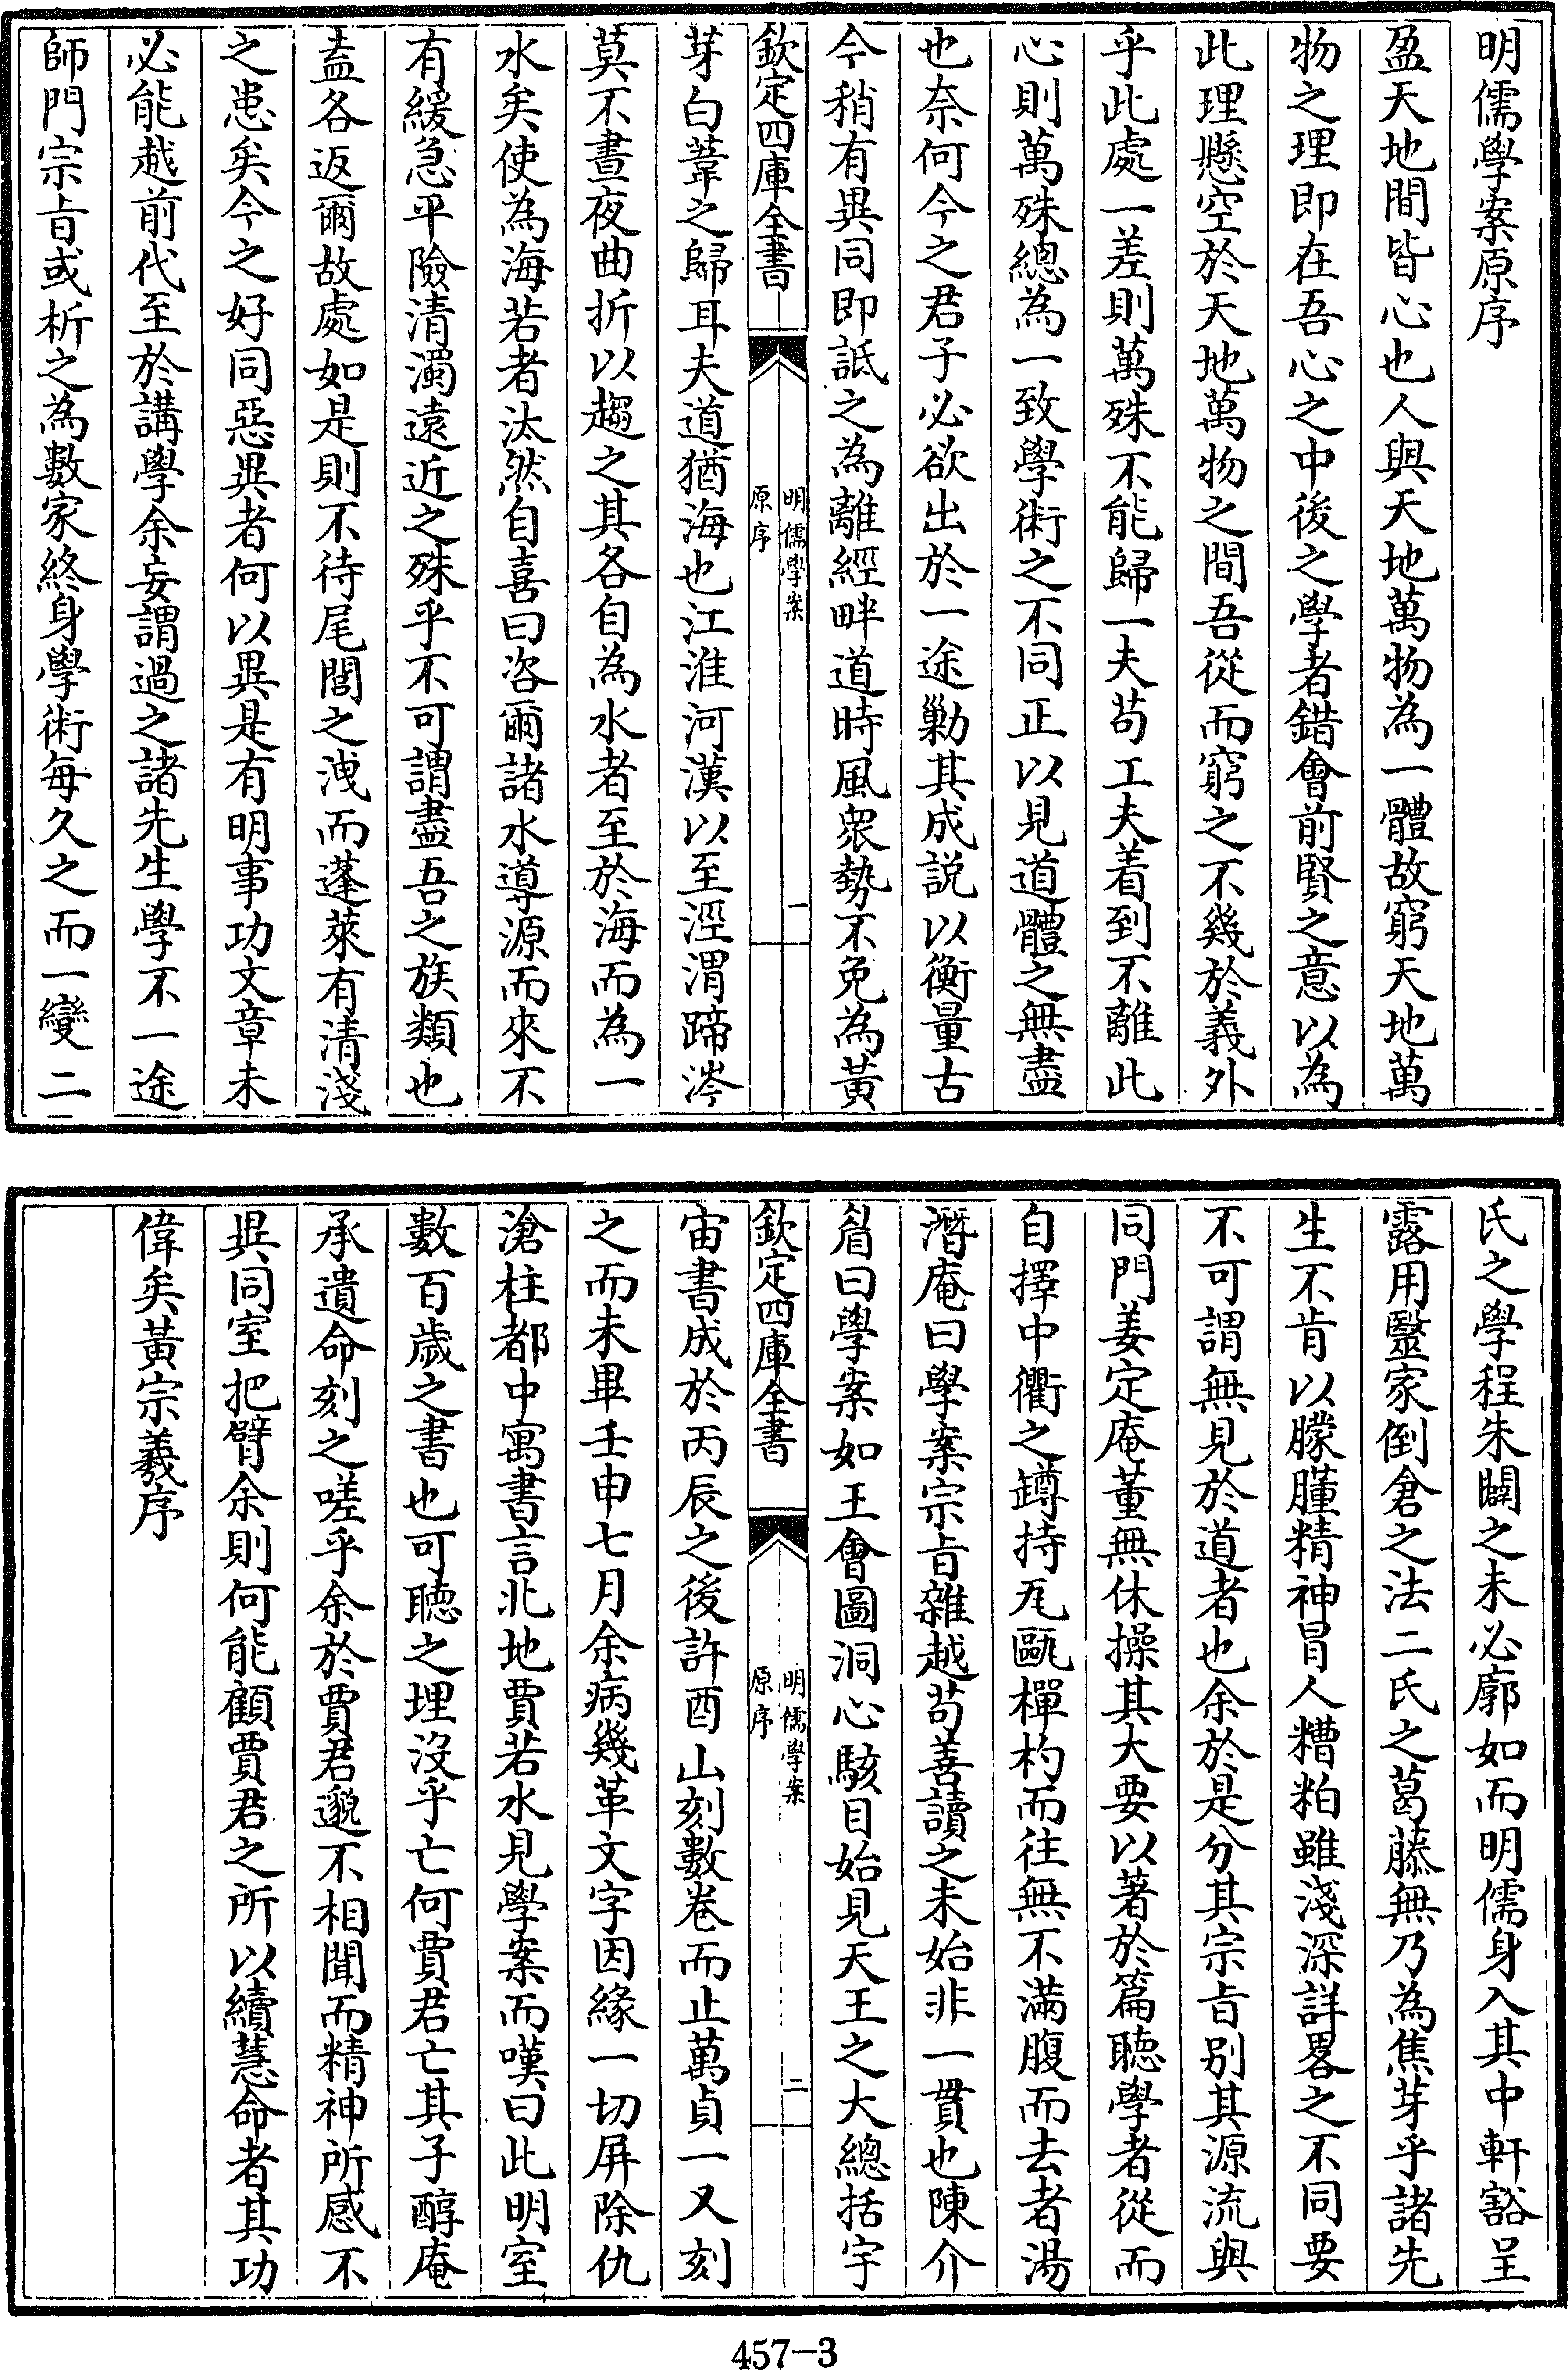 明儒學案原序
盈天地間皆心也人與天地萬物為一體故窮天地萬
物之理即在吾心之中後之學者錯會前賢之意以為
此理懸空於天地萬物之間吾從而窮之不幾於義外
乎此處一差則萬殊不能歸一夫苟工夫着到不離此
心則萬殊總為一致學術之不同正以見道體之無盡
也奈何今之君子必欲出於一途勦其成説以衡量古
今稍有異同即詆之為離經畔道時風衆勢不免為黃
欽定四庫全書
明儒學案
原序
一
芽白葦之歸耳夫道猶海也江淮河漢以至涇渭蹄涔
莫不晝夜曲折以趨之其各自為水者至於海而為一
水矣使為海若者汰然自喜曰咨爾諸水導源而來不
有緩急平險清濁遠近之殊乎不可謂盡吾之族類也
盍各返爾故處如是則不待尾閭之洩而蓬萊有清淺
之患矣今之好同惡異者何以異是有明事功文章未
必能越前代至於講學余妄謂過之諸先生學不一途
師門宗旨或析之為數家終身學術每久之而一變二
氏之學程朱闢之未必廓如而明儒身入其中軒豁呈
露用毉家倒倉之法二氏之葛藤無乃為焦芽乎諸先
生不肯以朦朣精神冒人糟粕雖淺深詳畧之不同要
不可謂無見於道者也余於是分其宗旨別其源流與
同門姜定庵董無休操其大要以著於篇聽學者從而
自擇中衢之罇持瓦甌樿杓而往無不滿腹而去者湯
潛庵曰學案宗旨雜越苟善讀之未始非一貫也陳介
眉曰學案如王會圖洞心駭目始見天王之大總括宇
欽定四庫全書
明儒學案
原序
二
宙書成於丙辰之後許酉山刻數卷而止萬貞一又刻
之而未畢壬申七月余病幾革文字因緣一切屏除仇
滄柱都中寓書言北地賈若水見學案而嘆曰此明室
數百歲之書也可聽之埋沒乎亡何賈君亡其子醇庵
承遺命刻之嗟乎余於賈君邈不相聞而精神所感不
異同室把臂余則何能顧賈君之所以續慧命者其功
偉矣黃宗羲序
457-3